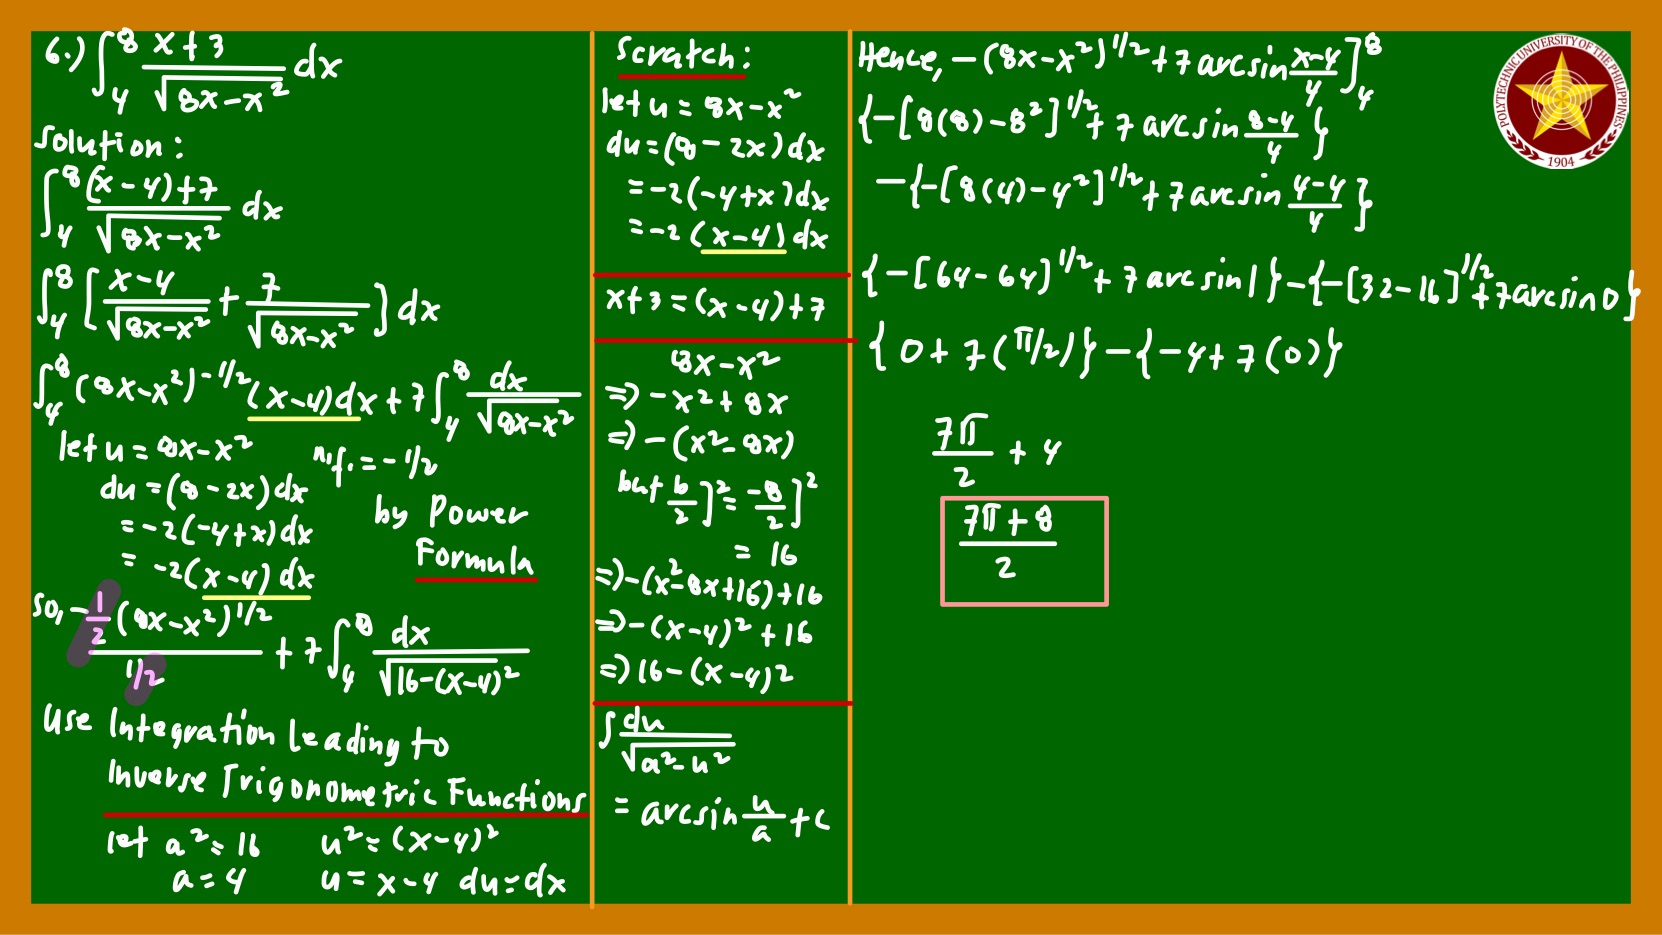 6.) ∫₄⁸ x+3 / √(8x-x²) dx
Solution:
∫₄⁸ (x-4)+7 / √(8x-x²) dx
∫₄⁸ [ x-4 / √(8x-x²) + 7 / √(8x-x²) ] dx
∫₄⁸ (8x-x²)^-1/2 (x-4)dx + 7 ∫₄⁸ dx / √(8x-x²)
let u = 8x-x² n.f. = -1/2
du = (8-2x)dx
= -2(-4+x)dx
= -2(x-4)dx
by Power
Formula
so, -1/2 (8x-x²)^1/2 / 1/2 + 7 ∫₄⁸ dx / √(16-(x-4)²)
Use Integration Leading to
Inverse Trigonometric Functions
let a² = 16 u² = (x-4)²
a = 4 u = x-4 du = dx
Scratch:
let u = 8x-x²
du = (8-2x)dx
= -2(-4+x)dx
= -2(x-4)dx
x+3 = (x-4)+7
8x-x²
=> -x²+8x
=> -(x²-8x)
but b/2]² = -8/2]²
= 16
=> -(x²-8x+16)+16
=> -(x-4)²+16
=> 16-(x-4)²
∫ du / √(a²-u²)
= arcsin u/a + c
Hence, -(8x-x²)^1/2 + 7 arcsin x-4/4 ]₄⁸
{-[8(8)-8²]^1/2 + 7 arcsin 8-4/4 }
-{-[8(4)-4²]^1/2 + 7 arcsin 4-4/4 }
{-[64-64]^1/2 + 7 arcsin 1} - {-[32-16]^1/2 + 7 arcsin 0}
{0+7(π/2)} - {-4+7(0)}
7π/2 + 4
7π+8 / 2
POLYTECHNIC UNIVERSITY OF THE PHILIPPINES
1904